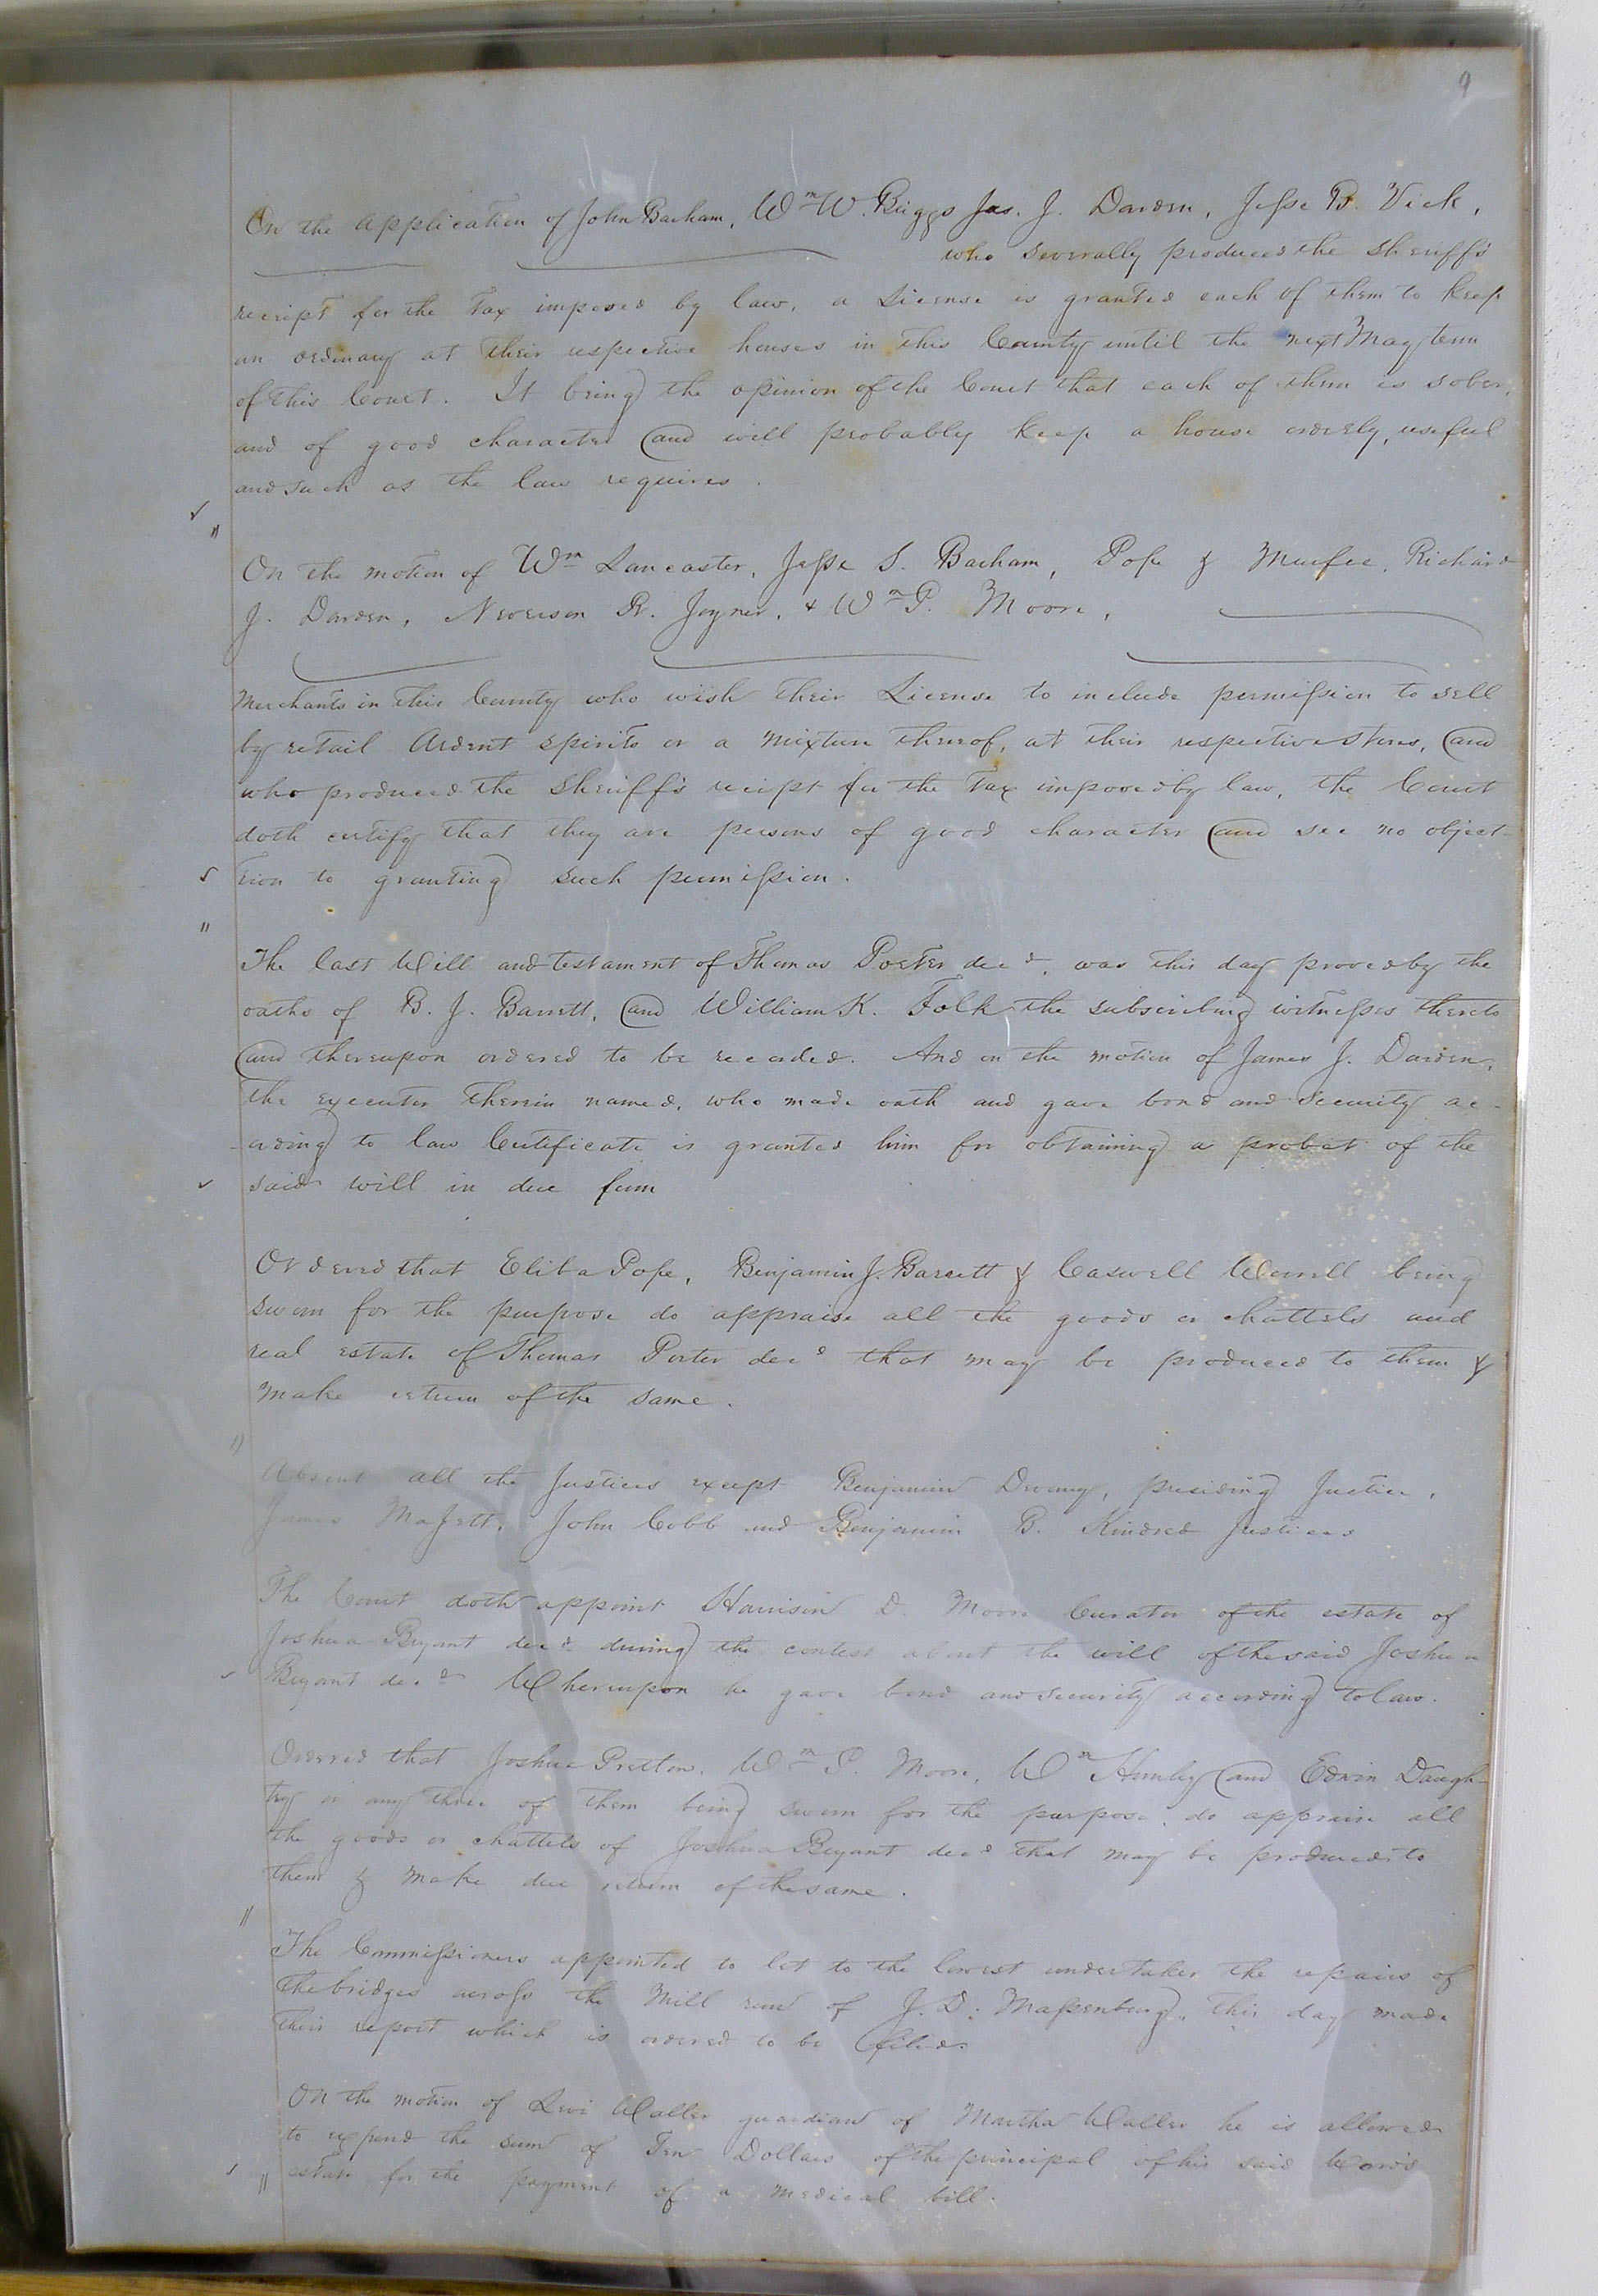 9
On the application of John Barham, Wm W. Briggs Jas. J. Darden, Jesse B. Vick,
who severally produced the sheriff's
receipt for the Tax imposed by law, a License is granted each of them to keep
an ordinary at their respective houses in this County until the next May term
of this Court. It being the opinion of the Court that each of them is sober,
and of good character and will probably keep a house orderly, useful
and such as the law requires.
On the motion of Wm Lancaster, Jesse S. Barham, Pope & Murfee, Richard
J. Darden, Neverson R. Joyner, & Wm P. Moore,
Merchants in this County who wish their License to include permission to sell
by retail Ardent spirits or a mixture thereof, at their respective stores, and
who produced the sheriff's reciept for the Tax imposed by law, the Court
doth certify that they are persons of good character and see no object-
tion to granting such permission.
The last Will and testament of Thomas Porter decd. was this day proved by the
oaths of B. J. Barrett, and William K. Folk the subscribing witnesses thereto
and thereupon ordered to be recorded. And on the motion of James J. Darden,
the executor therein named, who made oath and gave bond and security ac-
-cording to law Certificate is granted him for obtaining a probat of the
said will in due form
Ordered that Pope, Benjamin J. Barrett & Caswell Worrell being
sworn for the purpose do appraise all the goods or chattels and
real estate of Thomas Porter decd that may be produced to them &
make return of the same.
Absent all the Justices except Benjamin Devany, presiding Justice,
James Majett, John Cobb and Benjamin B. Kindred Justices
The Court doth appoint Harrison D. Moore Curator of the estate of
Joshua Bryant decd during the contest about the will of the said Joshua
Bryant decd Whereupon he gave bond and security according to law.
Ordered that Joshua Pretlow, Wm P. Moore, Wm and Edwin Daugh-
try or any three of them being sworn for the purpose, do appraise all
the goods or chattels of Joshua Bryant decd that may be produced to
them & make due return of the same.
The Commissioners appointed to let to the lowest undertaker the repairs of
the bridges across the Mill run of J. D. Massenburg, this day made
their report which is ordered to be filed.
On the motion of Levi Waller guardian of Martha Waller he is allowed
to expend the sum of Ten Dollars of the principal of his said Wards
estate for the payment of a medical bill.